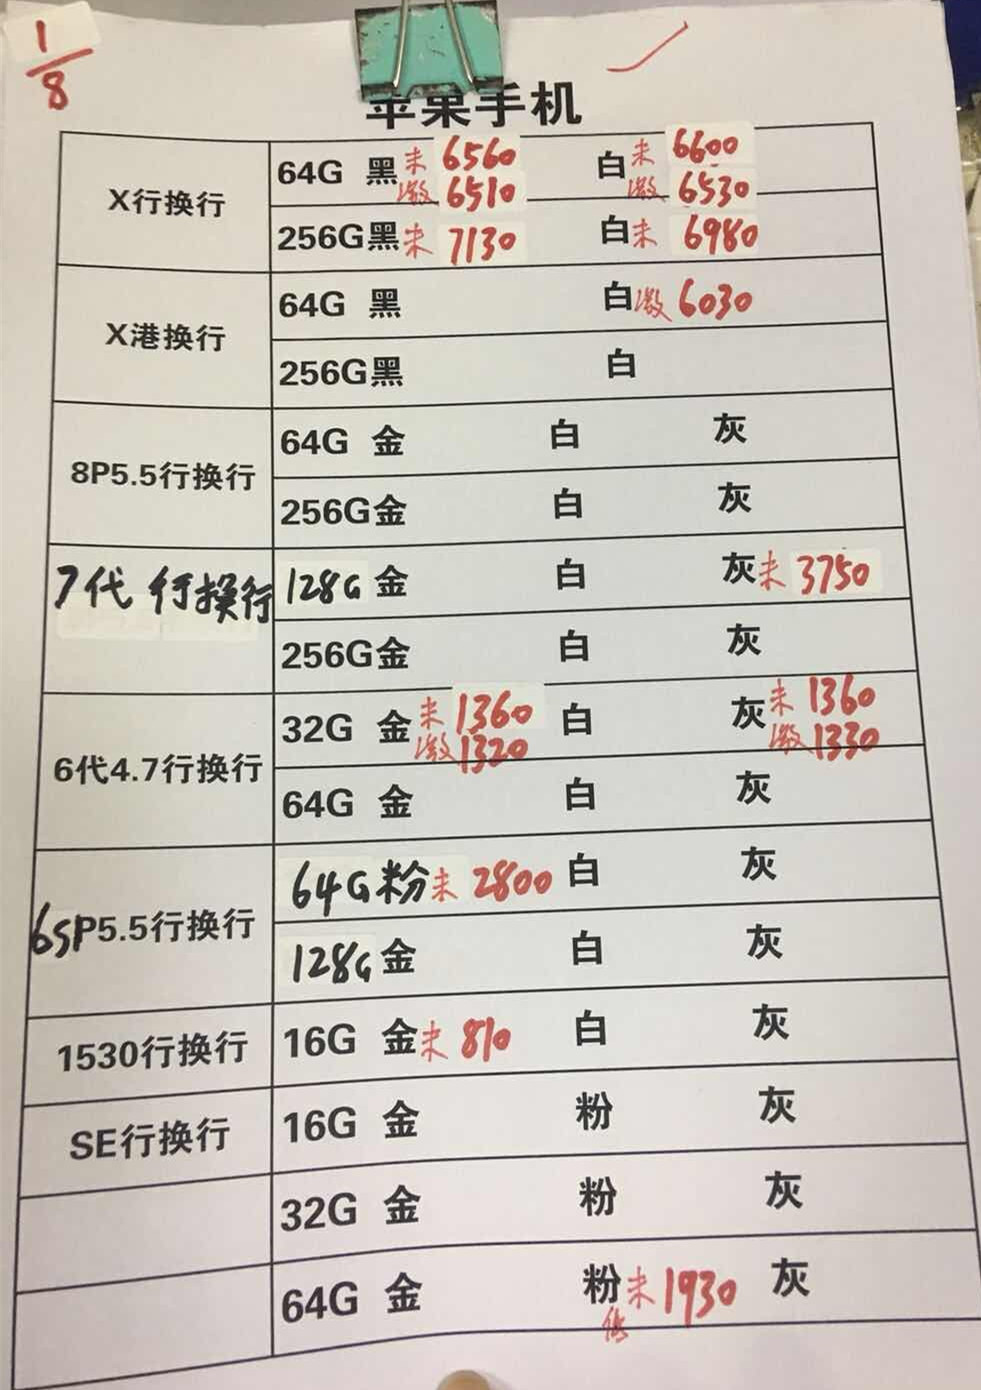 1/8
苹果手机
X行换行
64G 黑 未 6560 白 未 6600
激 6510 激 6530
256G 黑 未 7130 白 未 6980
X港换行
64G 黑 白 激 6030
256G 黑 白
8P5.5行换行
64G 金 白 灰
256G 金 白 灰
7代 行换行
128G 金 白 灰 未 3750
256G 金 白 灰
6代4.7行换行
32G 金 未 1360 白 灰 未 1360
激 1320 激 1330
64G 金 白 灰
6SP5.5行换行
64G 粉 未 2800 白 灰
128G 金 白 灰
1530行换行
16G 金 未 810 白 灰
SE行换行
16G 金 粉 灰
32G 金 粉 灰
64G 金 粉 未 1930 灰